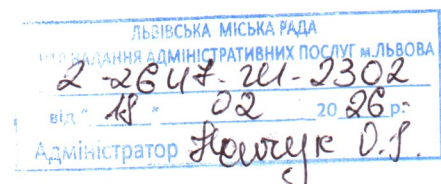 ЛЬВІВСЬКА МІСЬКА РАДА
НАДАННЯ АДМІНІСТРАТИВНИХ ПОСЛУГ м.ЛЬВОВА
2-2647-Ш-2302
від " 18 " 02 2026 р.
Адміністратор